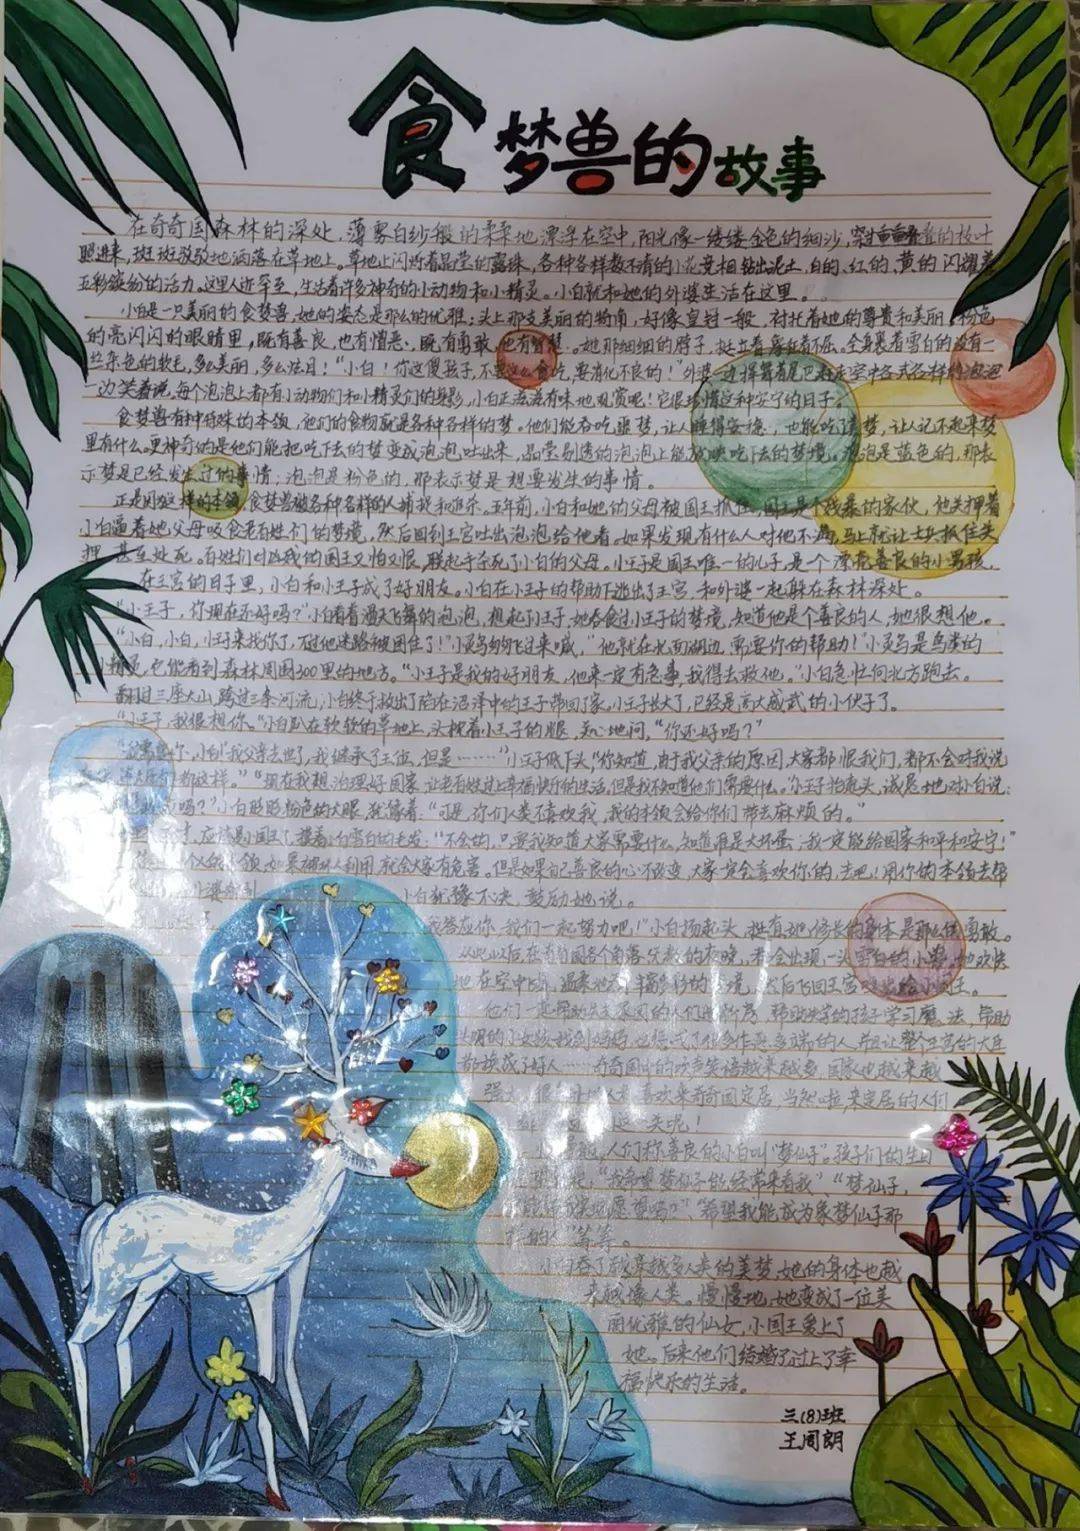 食梦兽的故事
在奇奇国森林的深处，薄雾白纱般的柔柔地漂浮在空中，阳光像一缕缕金色的细沙，穿过重重叠叠的枝叶
照进来，斑斑驳驳地洒落在草地上。草地上闪烁着晶莹的露珠，各种各样数不清的小花竞相钻出泥土，白的、红的、黄的闪耀着
五彩缤纷的活力。这里人迹罕至，生活着许多神奇的小动物和小精灵。小白就和她的外婆生活在这里。
小白是一只美丽的食梦兽，她的姿态是那么的优雅：头上那支美丽的犄角，好像皇冠一般，衬托着她的尊贵和美丽；粉色
的亮闪闪的眼睛里，既有善良，也有憎恶，既有勇敢，也有智慧。她那细细的脖子，挺出着身不屈。全身裹着雪白的没有一
丝杂色的软毛，多么美丽，多么炫目！“小白！你这傻孩子，不要这么贪吃，要消化不良的！”外婆一边挥舞着尾巴赶走空中各式各样的泡泡
一边笑着说，每个泡泡上都有小动物们和小精灵们的身影，小白正津津有味地观赏呢！它很珍惜这种安宁的日子。
食梦兽有种特殊的本领，他们的食物就是各种各样的梦。他们能吞吃噩梦，让人睡得安稳，也能吃清梦，让人记不起来梦
里有什么。更神奇的是他们能把吃下去的梦变成泡泡吐出来，晶莹剔透的泡泡上能放映吃下去的梦境。泡泡是蓝色的，那表
示梦是已经发生过的事情；泡泡是粉色的，那表示梦是想要发生的事情。
正是因为这样的本领，食梦兽被各种各样的人捕捉和追杀。五年前，小白和她的父母被国王抓住，国王是个残暴的家伙，他关押着
小白逼着她父母吸食老百姓们的梦境，然后回到王宫吐出泡泡给他看。如果发现有什么人对他不满，马上就让士兵抓住关
押，甚至处死。百姓们对凶残的国王又怕又恨，联起手杀死了小白的父母。小王子是国王唯一的儿子，是一个漂亮善良的小男孩，
在王宫的日子里，小白和小王子成了好朋友。小白在小王子的帮助下逃出了王宫，和外婆一起躲在森林深处。
“小王子，你现在还好吗？”小白看着漫天飞舞的泡泡，想起了小王子，她吞食过小王子的梦境，知道他是个善良的人，她很想他。
“小白，小白，小王子来找你了，不过他迷路被困住了！”小灵鸟匆匆飞过来喊，“他就在北面湖边，需要你的帮助！”小灵鸟是鸟类的
小精灵，它能看到森林周围300里的地方。“小王子是我的好朋友，他来一定有急事，我得去救他。”小白急忙向北方跑去。
翻过三座大山，跨过三条河流，小白终于救出了陷在沼泽中的王子带回了家，小王子长大了，已经是高大威武的小伙子了。
“小王子，我很想你。”小白趴在软软的草地上，头挽着小王子的腿，关心地问，“你还好吗？”
“我也想你，小白！我父亲去世了，我继承了王位，但是……”小王子低下头，“你知道，由于我父亲的原因，大家都恨我们，都不会对我说
都这样。”“现在我想治理好国家，让老百姓过上幸福快乐的生活，但是我不知道他们需要什么。”小王子抬起头，诚恳地对小白说：
吗？”小白眨眨粉色的大眼，犹豫着：“可是，你们人类不喜欢我，我的本领会给你们带去麻烦的。”
应该是小国王了，搂着小白雪白的毛发：“不会的，只要我知道大家需要什么，知道谁是大坏蛋，我一定能给国家和平和安宁！”
领，如果被坏人利用，就会大家有危害。但是如果自己善良的心不改变，大家一定会喜欢你的，去吧！用你的本领去帮
外婆 小白犹豫不决，鼓励她说。
我答应你，我们一起努力吧！”小白扬起头，挺直她修长的身体是那么优雅勇敢。
从此以后，在奇奇国各个角落，无数的夜晚，都会出现一头雪白的小兽，她欢快
地在空中飞，过来 丰富多彩的梦境，然后飞回王宫吐出给小国王。
他们一起帮助失去家园的人们造新房，帮助失学的孩子学习魔法，帮助
的小女孩找到妈妈，也惩戒了很多作恶多端的人，并且让整个王宫的大臣
都换成了好人……奇奇国的欢声笑语越来越多，国家也越来越
强大，很 喜欢来奇奇国定居，当然啦，来定居的人们
一头呢！
人们称善良的小白叫“梦仙子”。孩子们的生日
“我希望梦仙子能经常来看我”“梦仙子，
愿望吗？”“希望我能成为象梦仙子那
样的人”等等。
小白吞了越来越多人类的美梦，她的身体也越
来越像人类。慢慢地，她变成了一位美
丽优雅的仙女，小国王爱上了
她。后来他们结婚了，过上了幸
福快乐的生活。
三(8)班
王周朗